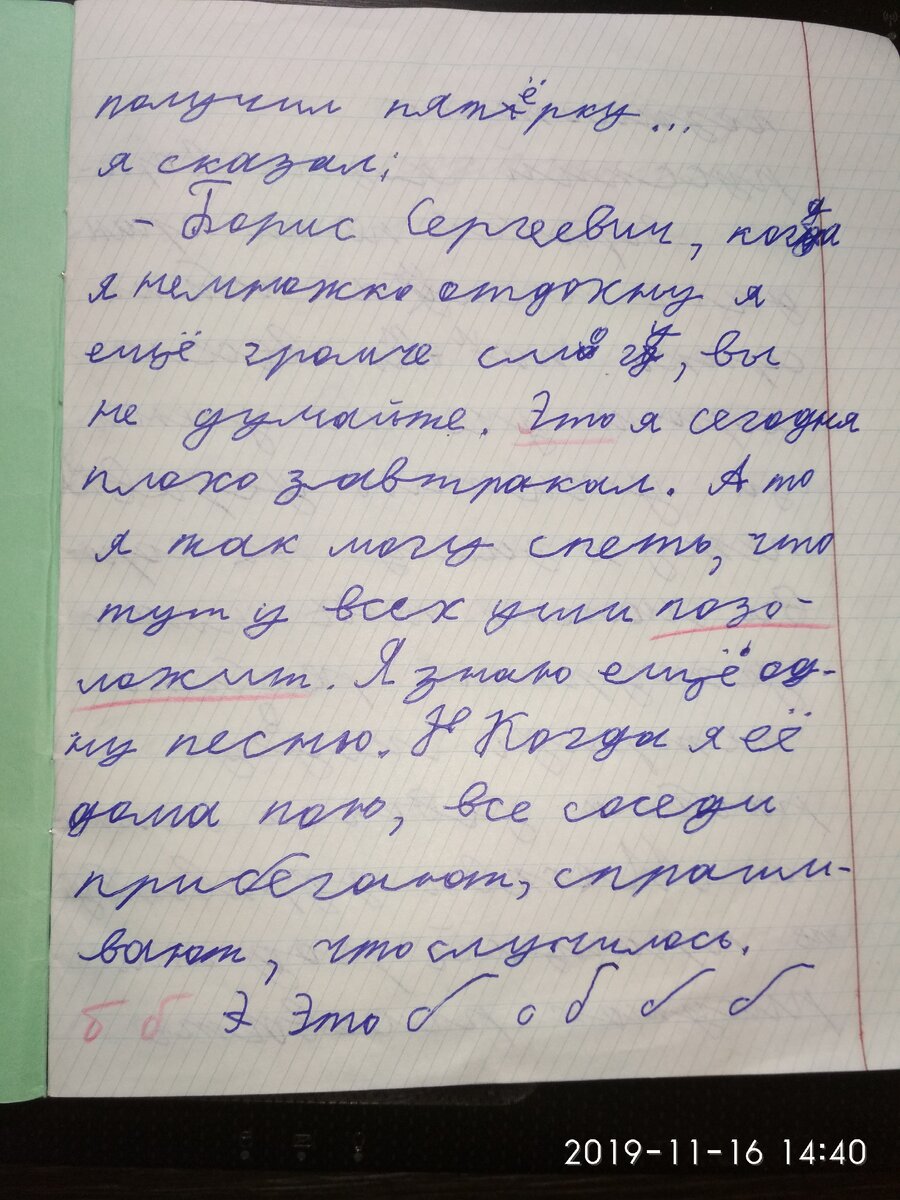 получил пятёрку...
я сказал:
- Борис Сергеевич, когда
я немножко отдохну я
ещё громче смогу, вы
не думайте. Это я сегодня
плохо завтракал. А то
я так могу спеть, что
тут у всех уши позо-
ложит. Я знаю ещё од-
ну песню. Н Когда я её
дома пою, все соседи
прибегают, спраши-
вают, что случилось.
б б Э Это б о б б б
2019-11-16 14:40